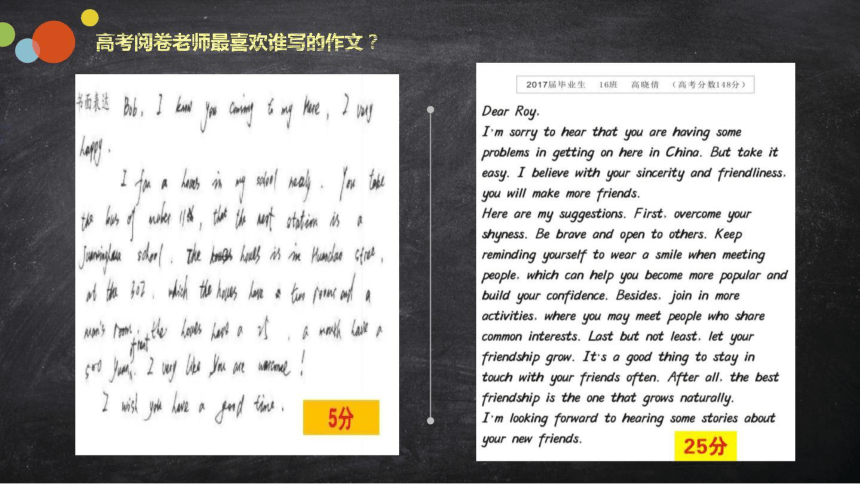 高考阅卷老师最喜欢谁写的作文？
书面表达 Bob, I know you coming to my here, I very
happy.
I for a hoves in my school nearly. You take
the bus of number 118, that the next station is a
school. The hoves is in Huanchao
at the 302. which the hoves have a two rooms and a
room. the hoves have a 25 . a month have a
500 yuan. I very like. You are !
I wish you have a good time.
5分
2017届毕业生 16班 高晓倩 （高考分数148分）
Dear Roy,
I'm sorry to hear that you are having some
problems in getting on here in China. But take it
easy. I believe with your sincerity and friendliness,
you will make more friends.
Here are my suggestions. First, overcome your
shyness. Be brave and open to others. Keep
reminding yourself to wear a smile when meeting
people, which can help you become more popular and
build your confidence. Besides, join in more
activities, where you may meet people who share
common interests. Last but not least, let your
friendship grow. It's a good thing to stay in
touch with your friends often. After all, the best
friendship is the one that grows naturally.
I'm looking forward to hearing some stories about
your new friends.
25分